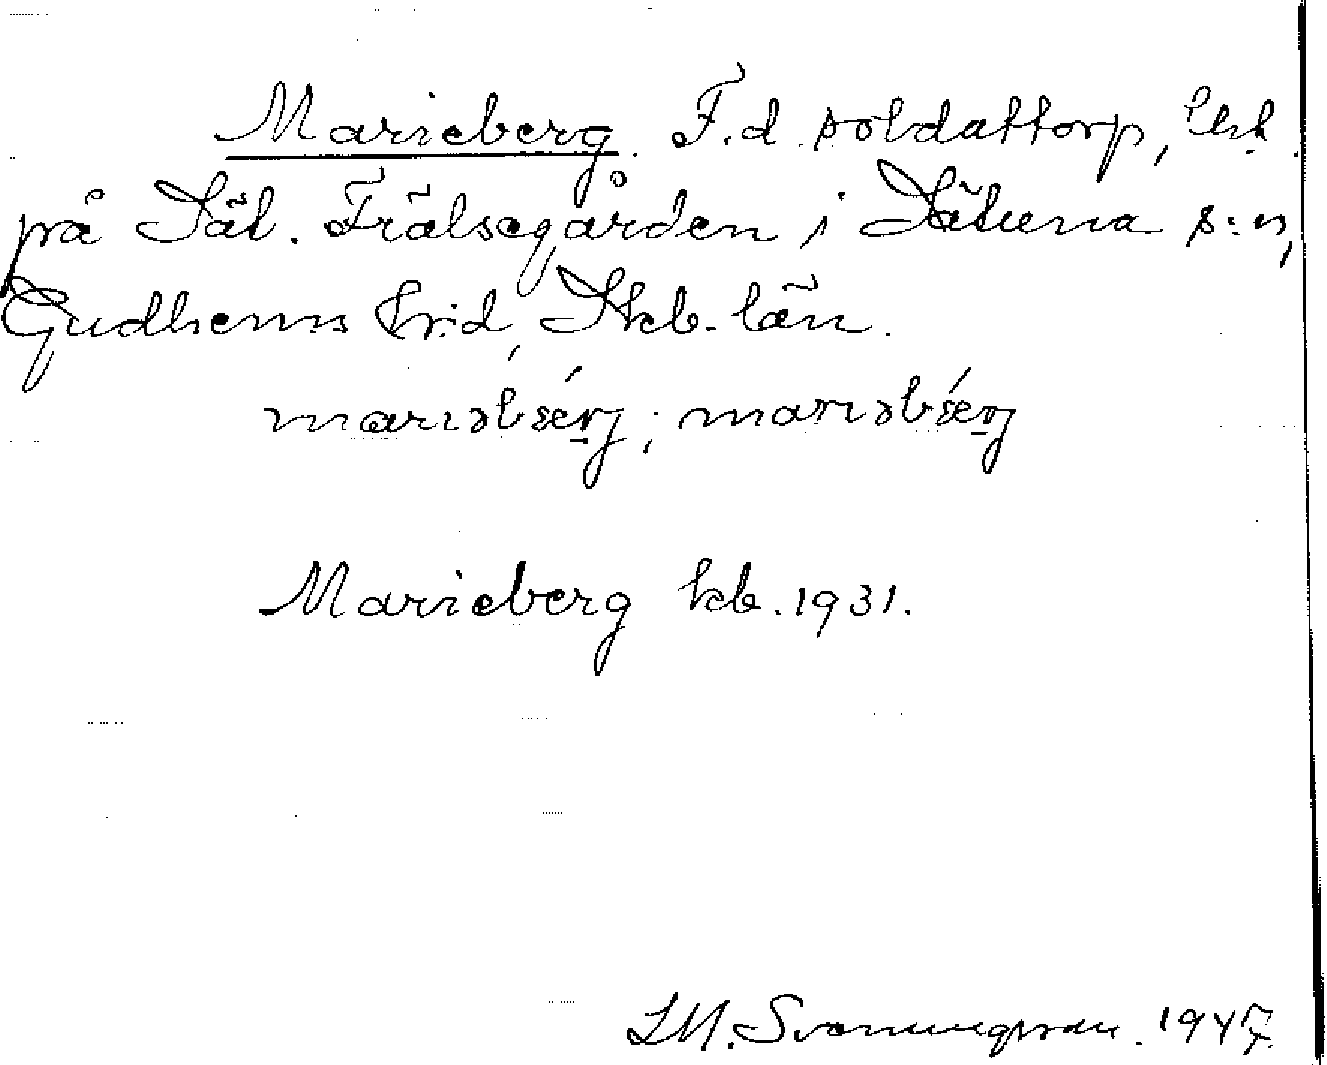 Marieberg. F.d. soldattorp,
på Sät. Frälsegården i Sätuna s:n,
Gudhems hrd, Skb. län.
mariəbærj; mariəbærj
Marieberg kb. 1931.
1947